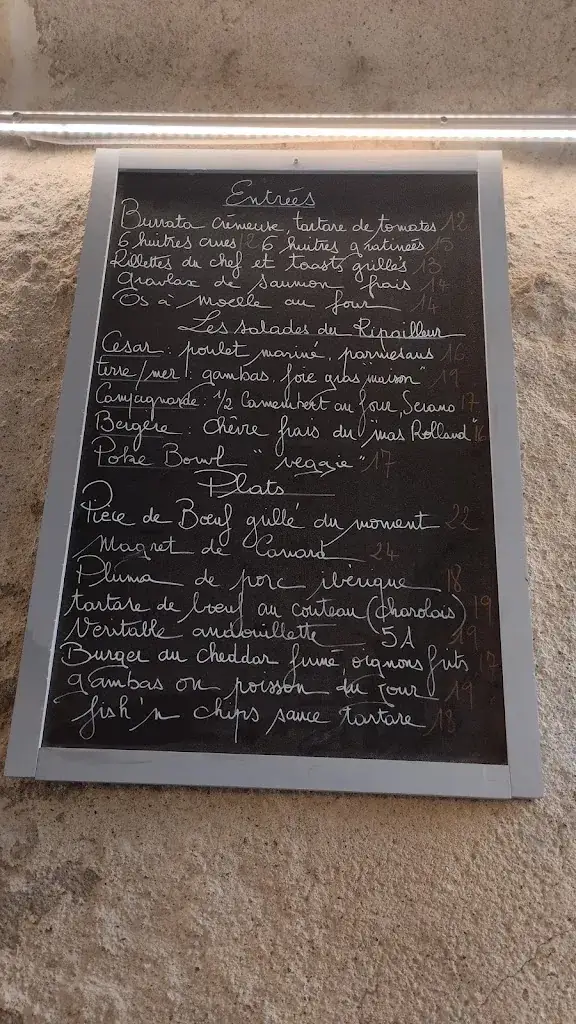 Entrées
Burrata crémeuse, tartare de tomates 12
6 huitres crues 12 6 huitres gratinées 15
Rillettes du chef et toasts grillés 13
Gravlax de saumon frais 14
Os à moelle au four 14
Les salades du Ripailleur
Cesar : poulet mariné, parmesans 16
terre/mer : gambas, foie gras "maison" 19
Campagnarde : 1/2 Camembert au four, Serano 17
Bergère : Chèvre frais du "mas Rolland" 16
Poke Bowl "veggie" 17
Plats
Pièce de Bœuf grillé du moment 22
Magret de Canard 24
Pluma de porc ibérique 18
tartare de bœuf au couteau (Charolais) 19
Veritable andouillette 5A 19
Burger au cheddar fumé, oignons frits 17
gambas ou poisson du jour 19
fish'n chips sauce tartare 18